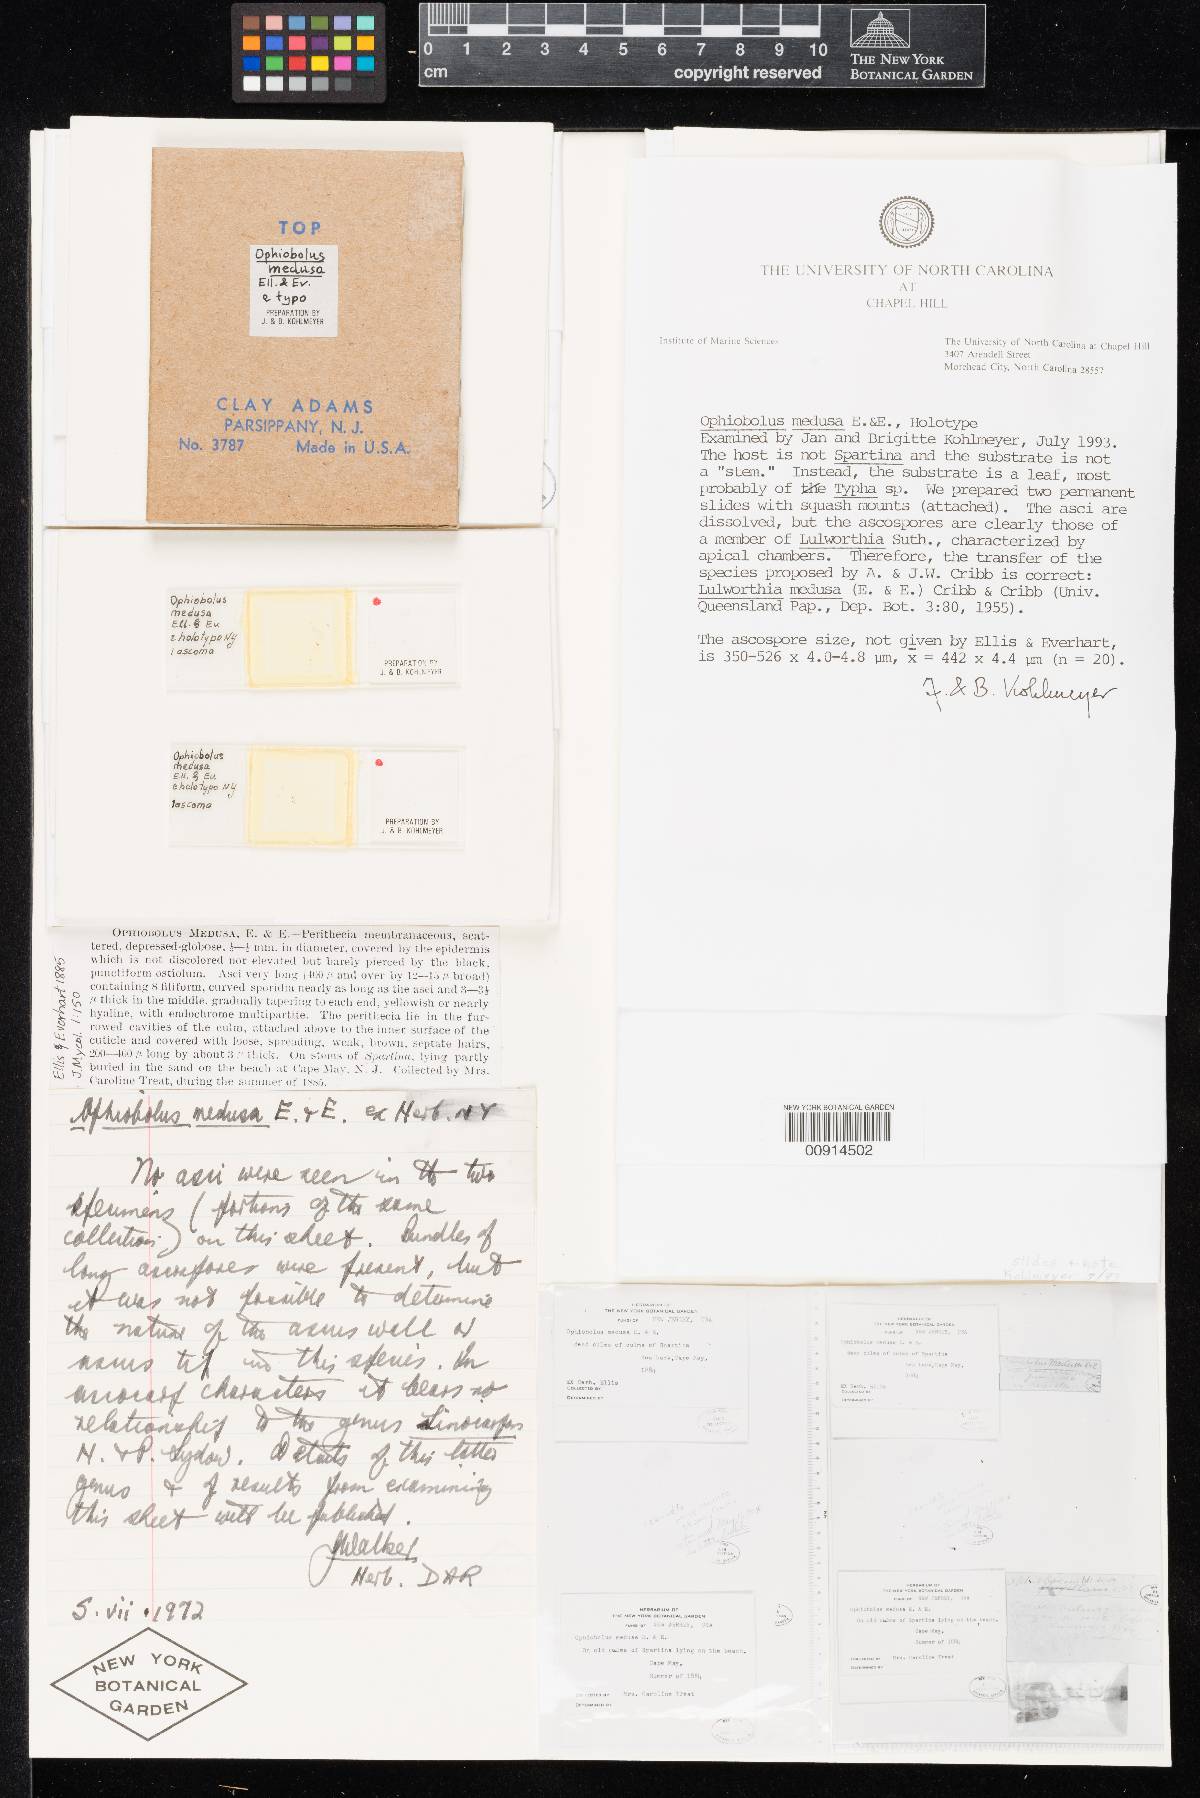 0 1 2 3 4 5 6 7 8 9 10
cm
copyright reserved
THE NEW YORK
BOTANICAL GARDEN
TOP
Ophiobolus
medusa
Ell. & Ev.
e typo
PREPARATION BY
J. & B. KOHLMEYER
CLAY ADAMS
PARSIPPANY, N. J.
No. 3787 Made in U.S.A.
THE UNIVERSITY OF NORTH CAROLINA
AT
CHAPEL HILL
Institute of Marine Sciences
The University of North Carolina at Chapel Hill
3407 Arendell Street
Morehead City, North Carolina 28557
Ophiobolus medusa E.&E., Holotype
Examined by Jan and Brigitte Kohlmeyer, July 1993.
The host is not Spartina and the substrate is not
a "stem." Instead, the substrate is a leaf, most
probably of the Typha sp. We prepared two permanent
slides with squash mounts (attached). The asci are
dissolved, but the ascospores are clearly those of
a member of Lulworthia Suth., characterized by
apical chambers. Therefore, the transfer of the
species proposed by A. & J.W. Cribb is correct:
Lulworthia medusa (E. & E.) Cribb & Cribb (Univ.
Queensland Pap., Dep. Bot. 3:80, 1955).
The ascospore size, not given by Ellis & Everhart,
is 350-526 x 4.0-4.8 µm, x̄ = 442 x 4.4 µm (n = 20).
J. & B. Kohlmeyer
Ophiobolus
medusa
Ell. & Ev.
e holotypo NY
1 ascoma
PREPARATION BY
J. & B. KOHLMEYER
Ophiobolus
medusa
Ell. & Ev.
e holotypo NY
1 ascoma
PREPARATION BY
J. & B. KOHLMEYER
Ellis & Everhart 1885
J. Mycol. 1:150
OPHIOBOLUS MEDUSA, E. & E.—Perithecia membranaceous, scat-
tered, depressed-globose, mm. in diameter, covered by the epidermis
which is not discolored nor elevated but barely pierced by the black,
punctiform ostiolum. Asci very long (400 µ and over by 12—15 µ broad)
containing 8 filiform, curved sporidia nearly as long as the asci and 3—3½
µ thick in the middle, gradually tapering to each end, yellowish or nearly
hyaline, with endochrome multipartite. The perithecia lie in the fur-
rowed cavities of the culm, attached above to the inner surface of the
cuticle and covered with loose, spreading, weak, brown, septate hairs,
200—400 µ long by about 3 µ thick. On stems of Spartina, lying partly
buried in the sand on the beach at Cape May, N. J. Collected by Mrs.
Caroline Treat, during the summer of 1885.
Ophiobolus medusa E. & E. ex Herb. NY
No asci were seen in the two
specimens (portions of the same
collection) on this sheet. Bundles of
long ascospores were present, but
it was not possible to determine
the nature of the ascus wall or
ascus tip in this species. In
ascocarp characters it bears no
relationship to the genus Linocarpon
H. & P. Sydow. Details of this latter
genus & of results from examining
this sheet will be published.
J Walker
Herb. DAR
5.vii.1972
NEW YORK
BOTANICAL
GARDEN
NEW YORK BOTANICAL GARDEN
00914502
slides + note
Kohlmeyer 7/93
HERBARIUM OF
THE NEW YORK BOTANICAL GARDEN
FUNGI OF NEW JERSEY, USA
Ophiobolus medusa E. & E.
dead culms of Spartina
Cape May,
1884
EX Herb. Ellis
COLLECTED BY
DETERMINED BY
HERBARIUM OF
THE NEW YORK BOTANICAL GARDEN
FUNGI OF NEW JERSEY, USA
Ophiobolus medusa E. & E.
dead culms of Spartina
Cape May,
1884
EX Herb. Ellis
COLLECTED BY
DETERMINED BY
HERBARIUM OF
THE NEW YORK BOTANICAL GARDEN
FUNGI OF NEW JERSEY, USA
Ophiobolus medusa E. & E.
On old culms of Spartina lying on the beach.
Cape May,
Summer of 1884
COLLECTED BY Mrs. Caroline Treat
DETERMINED BY
HERBARIUM OF
THE NEW YORK BOTANICAL GARDEN
FUNGI OF NEW JERSEY, USA
Ophiobolus medusa E. & E.
On old culms of Spartina lying on the beach.
Cape May,
Summer of 1884
COLLECTED BY Mrs. Caroline Treat
DETERMINED BY